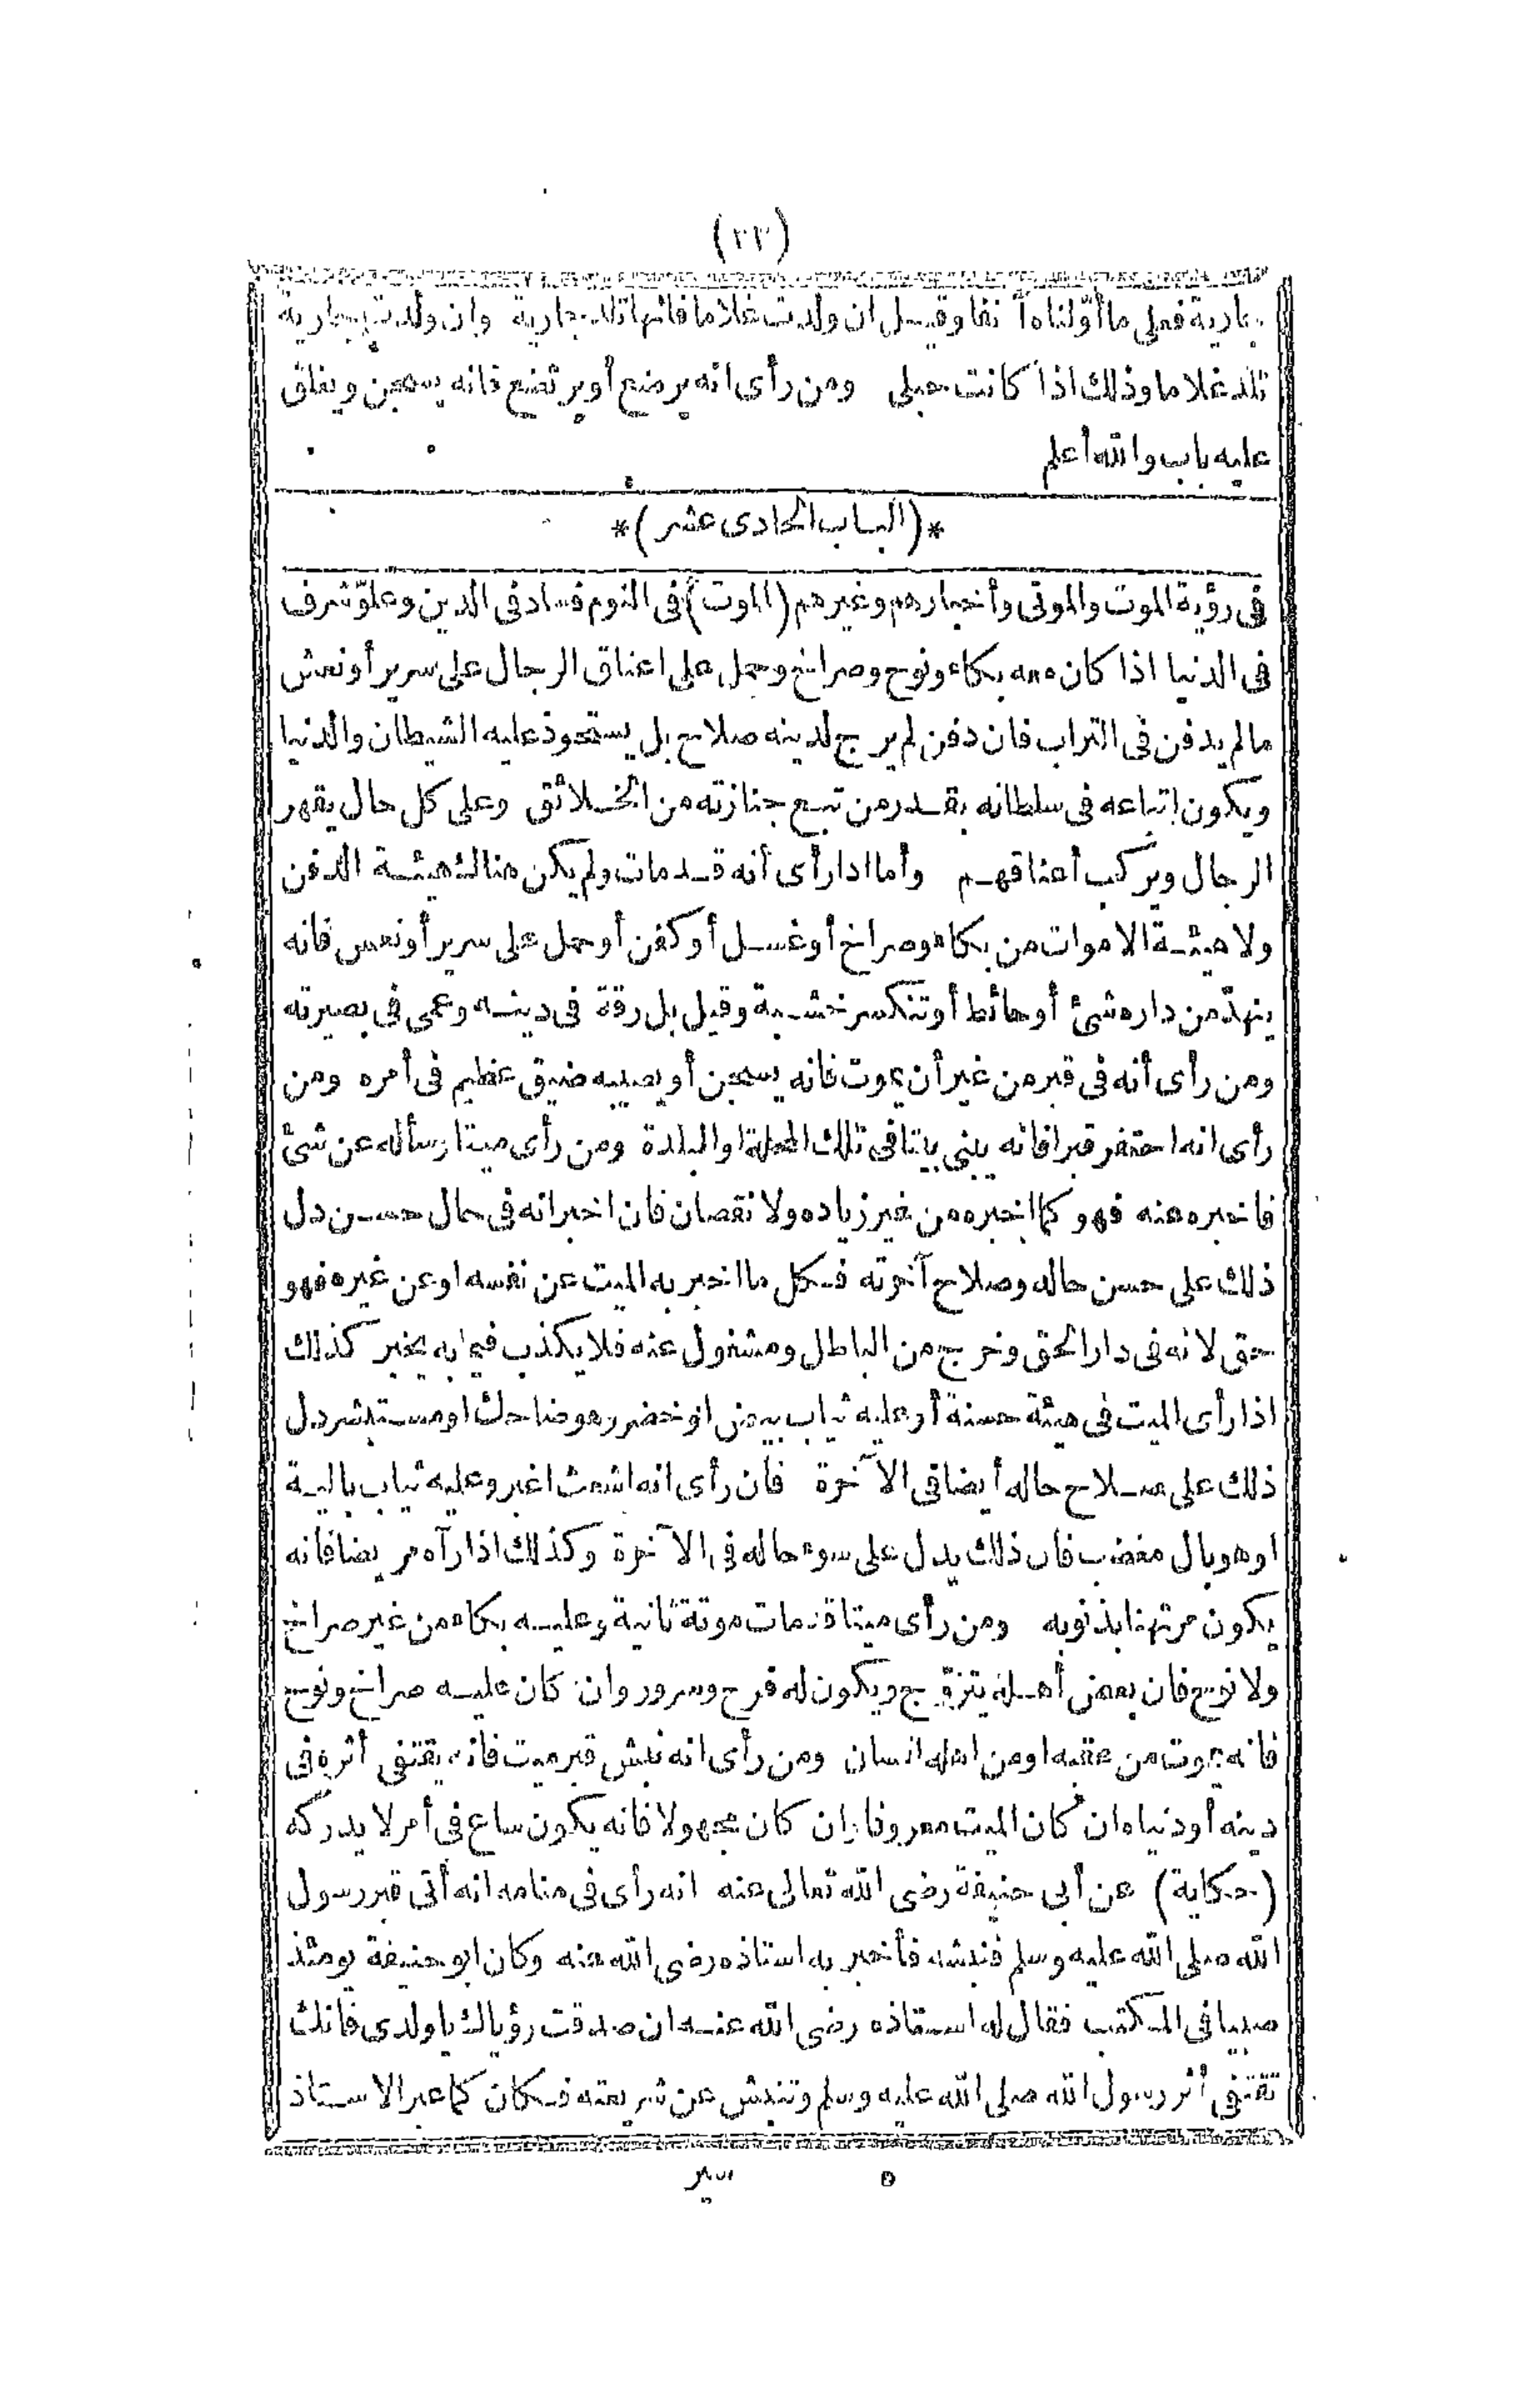 (٣٣)
جارية فعلى ما أوّلناه آنفا وقيل ان ولدت غلاما فانها تلد جارية وان ولدت جارية
تلد غلاما وذلك اذا كانت حبلى ومن رأى انه يرضع أو يرتضع فانه يسجن ويغلق
عليه باب والله أعلم
*(الباب الحادى عشر)*
فى رؤية الموت والموتى وأخبارهم وغيرهم (الموت) فى النوم فساد فى الدين وعلوّ شرف
فى الدنيا اذا كان معه بكاء ونوح وصراخ وحمل على اعناق الرجال على سرير أو نعش
مالم يدفن فى التراب فان دفن لم يرج لدينه صلاح بل يستحوذ عليه الشيطان والدنيا
ويكون اتباعه فى سلطانه بقدر من تبع جنازته من الخلائق وعلى كل حال يقهر
الرجال ويركب أعناقهم وأما اذا رأى أنه قد مات ولم يكن هناك هيئة الدفن
ولا هيئة الاموات من بكاء وصراخ أو غسل أو كفن أو حمل على سرير أو نعش فانه
ينهدّ من داره شئ أو حائط أو تنكسر خشبة وقيل بل رقة فى دينه وعمى فى بصيرته
ومن رأى أنه فى قبر من غير أن يموت فانه يسجن أو يصيبه ضيق عظيم فى أمره ومن
رأى انه احتفر قبرا فانه يبنى بيتا فى تلك المحلة او البلدة ومن رأى ميتا وسأله عن شئ
فاخبره عنه فهو كما اخبره من غير زياده ولا نقصان فان اخبر انه فى حال حسن دل
ذلك على حسن حاله وصلاح آخرته فكل ما اخبر به الميت عن نفسه او عن غيره فهو
حق لانه فى دار الحق وخرج من الباطل ومشغول عنه فلا يكذب فيما به يخبر كذلك
اذا رأى الميت فى هيئة حسنة أو عليه ثياب بيض او خضر وهو ضاحك او مستبشر دل
ذلك على صلاح حاله أيضا فى الآخرة فان رأى انه اشعث اغبر وعليه ثياب بالية
او هو بال مغضب فان ذلك يدل على سوء حاله فى الآخرة وكذلك اذا رآه مريضا فانه
يكون مرتهنا بذنوبه ومن رأى ميتا قد مات موتة ثانية وعليه بكاء من غير صراخ
ولا نوح فان بعض أهله يتزوّج ويكون له فرح وسرور وان كان عليه صراخ ونوح
فانه يموت من عقبه او من اهله انسان ومن رأى انه نبش قبر ميت فانه يقتفى أثره فى
دينه أو دنياه ان كان الميت معروفا وان كان مجهولا فانه يكون ساع فى أمر لا يدركه
(حكاية) عن أبى حنيفة رضى الله تعالى عنه انه رأى فى منامه انه أتى قبر رسول
الله صلى الله عليه وسلم فنبشه فأخبر به استاذه رضى الله عنه وكان ابو حنيفة يومئذ
صبيا فى المكتب فقال له استاذه رضى الله عنه ان صدقت رؤياك يا ولدى فانك
تقتفى أثر رسول الله صلى الله عليه وسلم وتنبش عن شريعته فكان كما عبر الاستاذ
٥ سير